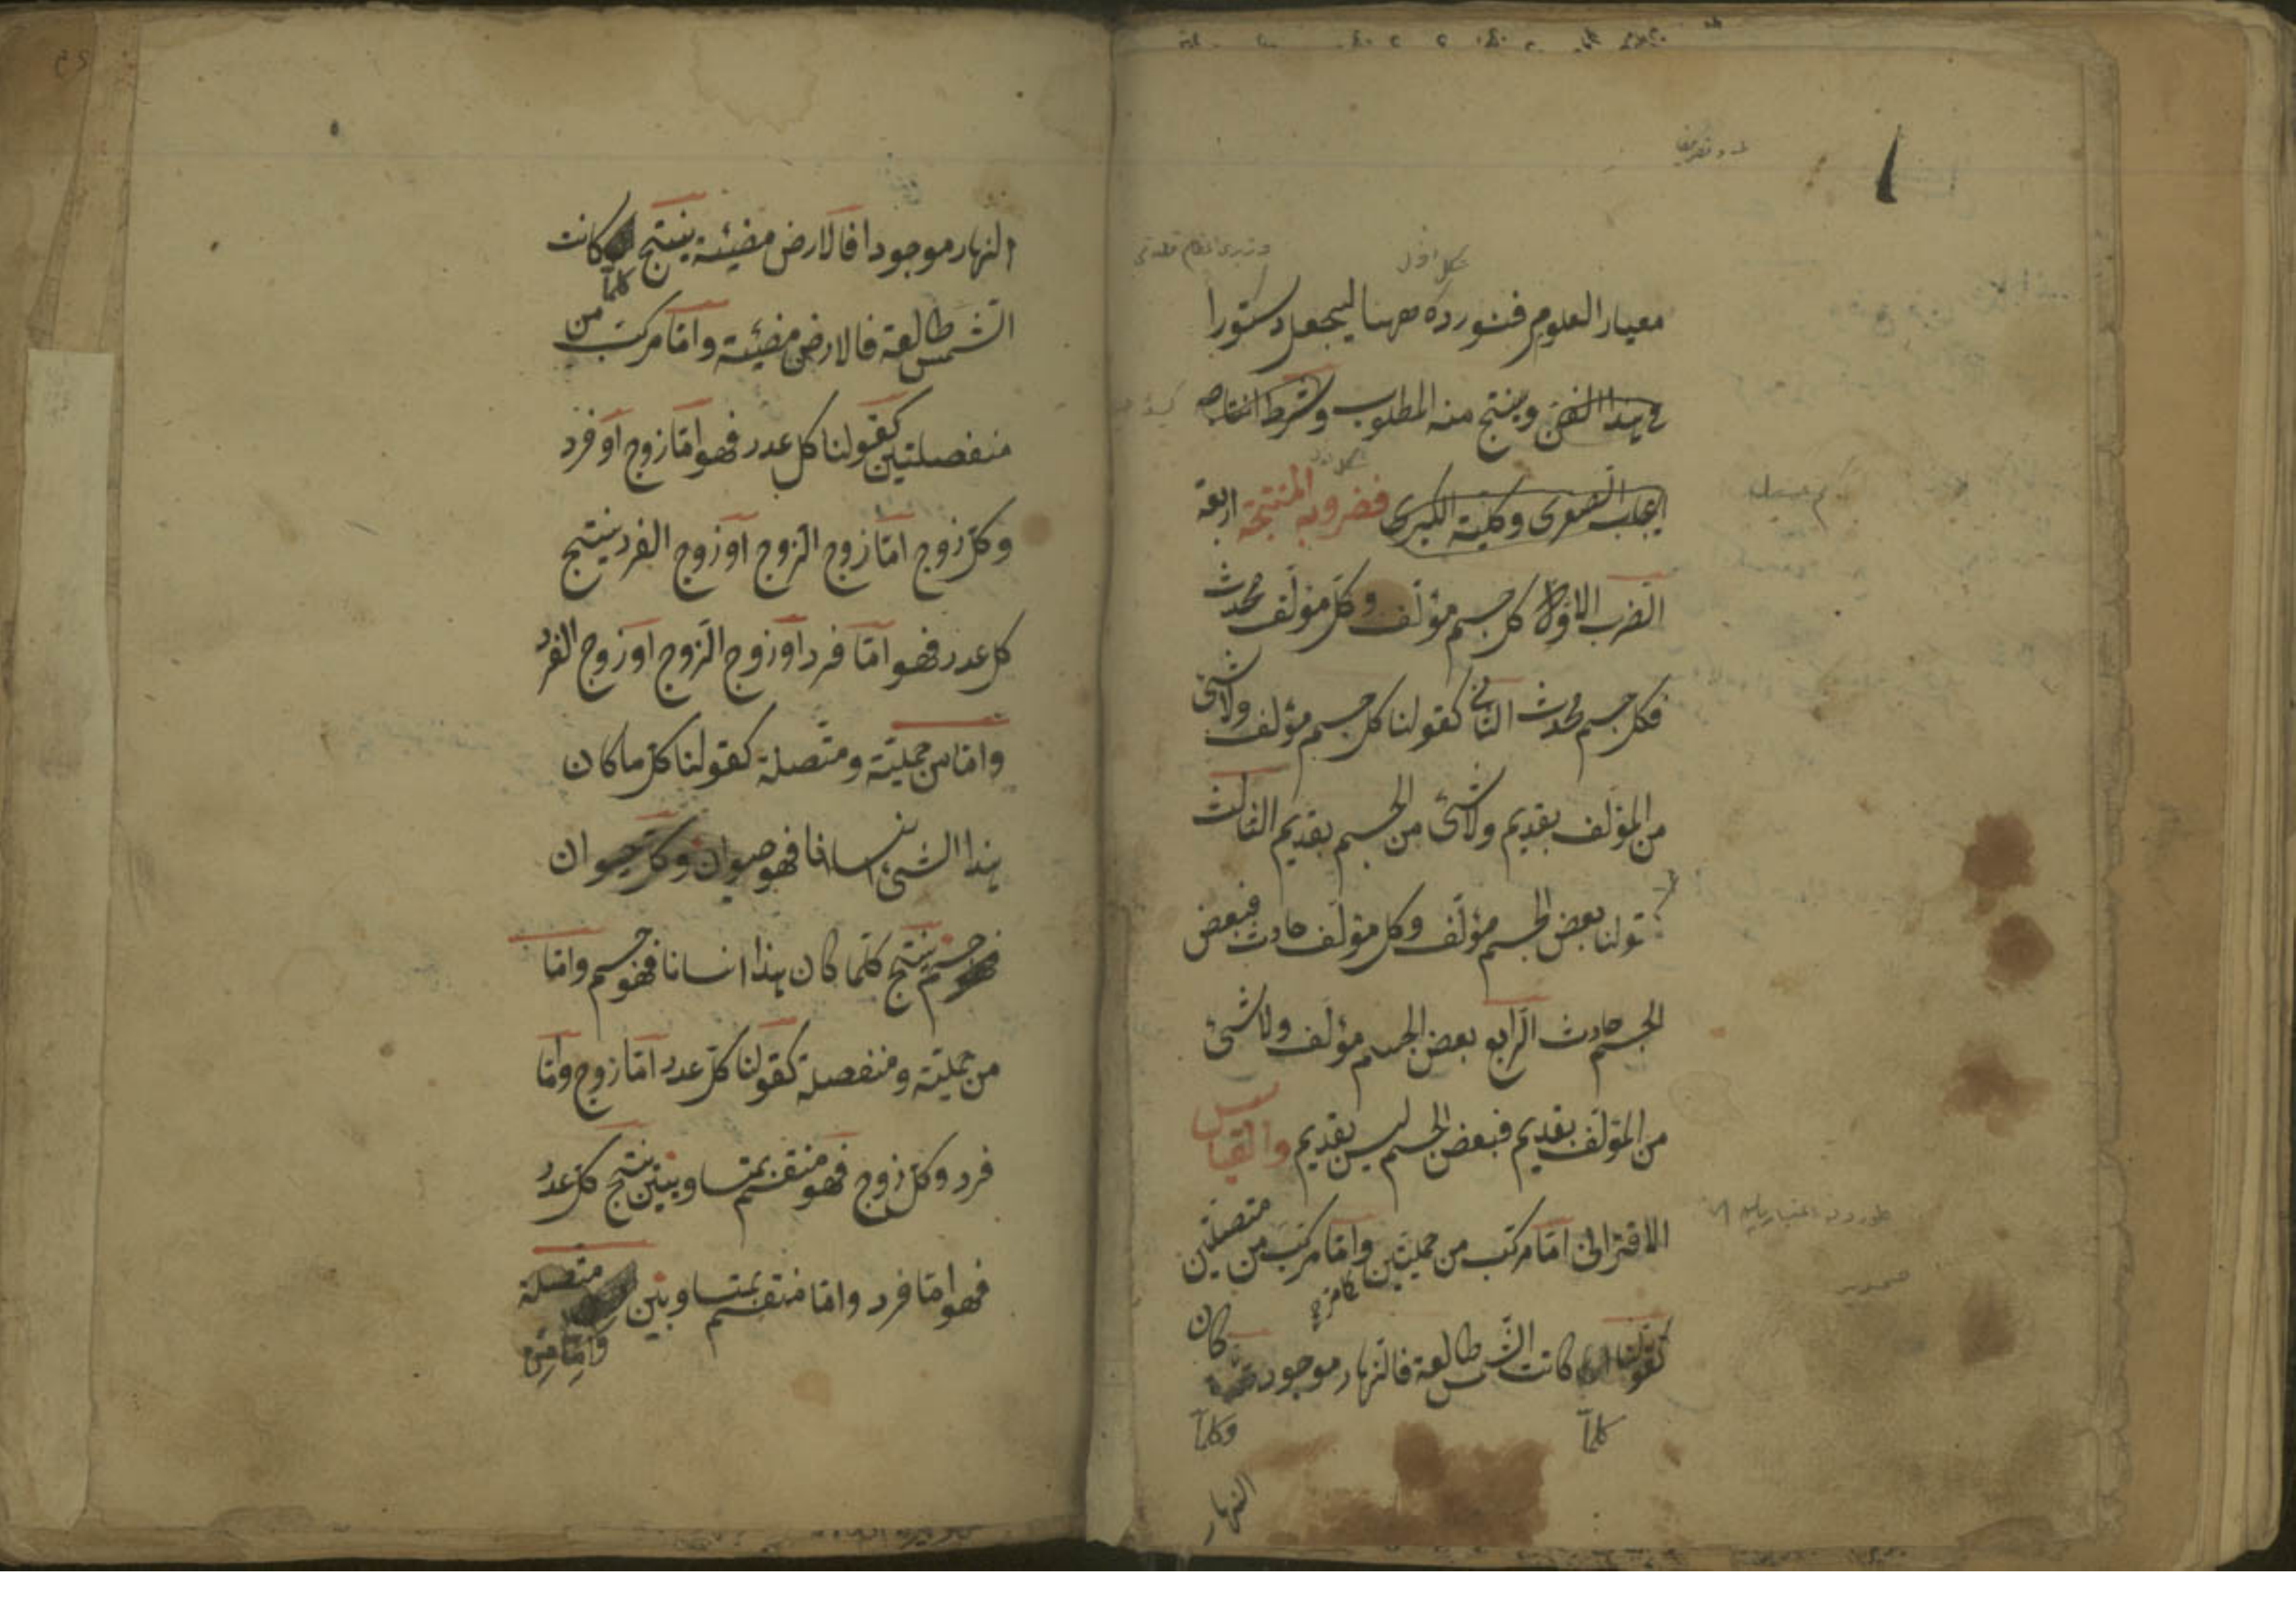 شكل اول
معيار العلوم فنورده ههنا ليجعل دستورا
فى هذا الفن وينتج منه المطلوب وشرط انتاجه
ايجاب الصغرى وكلية الكبرى فضروبه المنتجة اربعة
الضرب الاول كل جسم مؤلّف وكلّ مؤلّف محدث
فكل جسم محدث الثانى كقولنا كل جسم مؤلف ولا شئ
من المؤلّف بقديم ولا شئ من الجسم بقديم الثالث
قولنا بعض الجسم مؤلّف وكل مؤلّف حادث فبعض
الجسم حادث الرّابع بعض الجسم مؤلّف ولا شئ
من المؤلّف بقديم فبعض الجسم ليس بقديم والقياس
الاقترانى امّا مركّب من حمليّتين كامرّ وامّا مركّب من متصلتين
كقولنا كلما كانت الشّمس طالعة فالنّهار موجود وكلما كان
النهار
النهار موجودا فالارض مضيئة ينتج كلما كانت
الشّمس طالعة فالارض مضيئة وامّا مركّب من
منفصلتين كقولنا كل عدد فهو امّا زوج او فرد
وكلّ زوج امّا زوج الزّوج او زوج الفرد ينتج
كل عدد فهو امّا فرد او زوج الزّوج او زوج الفرد
وامّا من حمليّة ومتّصلة كقولنا كل ما كان
هذا الشئ انسانا فهو حيوان وكلّ حيوان
فهو جسم ينتج كلّما كان هذا انسانا فهو جسم وامّا
من حمليّة ومنفصلة كقولنا كلّ عدد امّا زوج وامّا
فرد وكل زوج فهو منقسم بمتساويين ينتج كلّ عدد
فهو امّا فرد وامّا منقسم بمتساويين
وامّا من متصلة